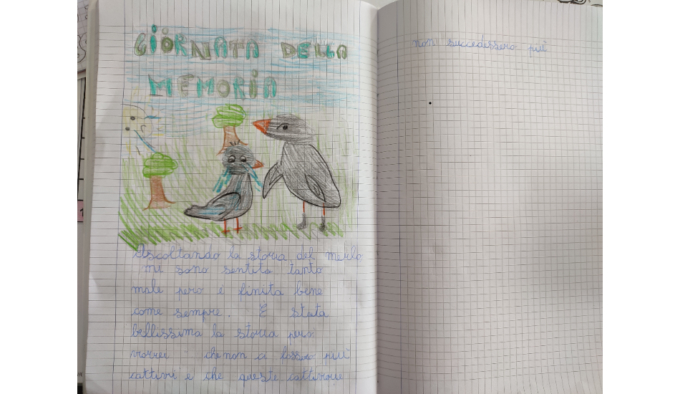 GIORNATA DELLA
MEMORIA
Ascoltando la storia del merlo
mi sono sentita tanto
male però è finita bene
come sempre. È stata
bellissima la storia però
vorrei che non ci fossero più
cattivi e che queste cattiverie
non succedessero più